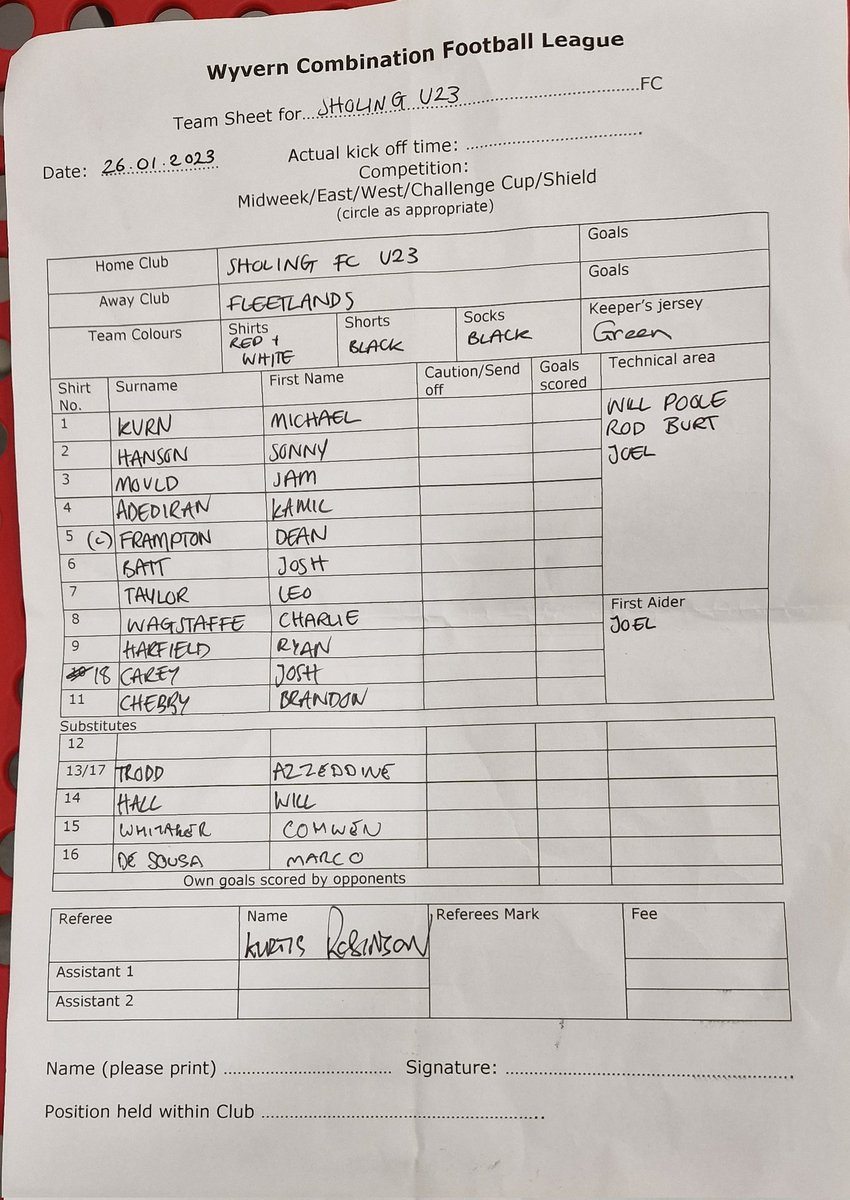 Wyvern Combination Football League
Team Sheet for SHOLING U23 FC
Date: 26.01.2023 Actual kick off time:
Competition:
Midweek/East/West/Challenge Cup/Shield
(circle as appropriate)
Home Club SHOLING FC U23 Goals
Away Club FLEETLANDS Goals
Team Colours Shirts RED + WHITE Shorts BLACK Socks BLACK Keeper's jersey Green
Shirt No. Surname First Name Caution/Send off Goals scored Technical area
1 KURN MICHAEL WILL POOLE
2 HANSON SONNY ROD BURT
3 MOULD JAM JOEL
4 ADEDIRAN KAMIL
5 (C) FRAMPTON DEAN
6 BATT JOSH
7 TAYLOR LEO First Aider
8 WAGSTAFFE CHARLIE JOEL
9 HARFIELD RYAN
18 CAREY JOSH
11 CHERRY BRANDON
Substitutes
12
13/17 TRODD AZZEDDINE
14 HALL WILL
15 WHITAKER
16 DE SOUSA MARCO
Own goals scored by opponents
Referee Name KURTIS ROBINSON Referees Mark Fee
Assistant 1
Assistant 2
Name (please print) Signature:
Position held within Club